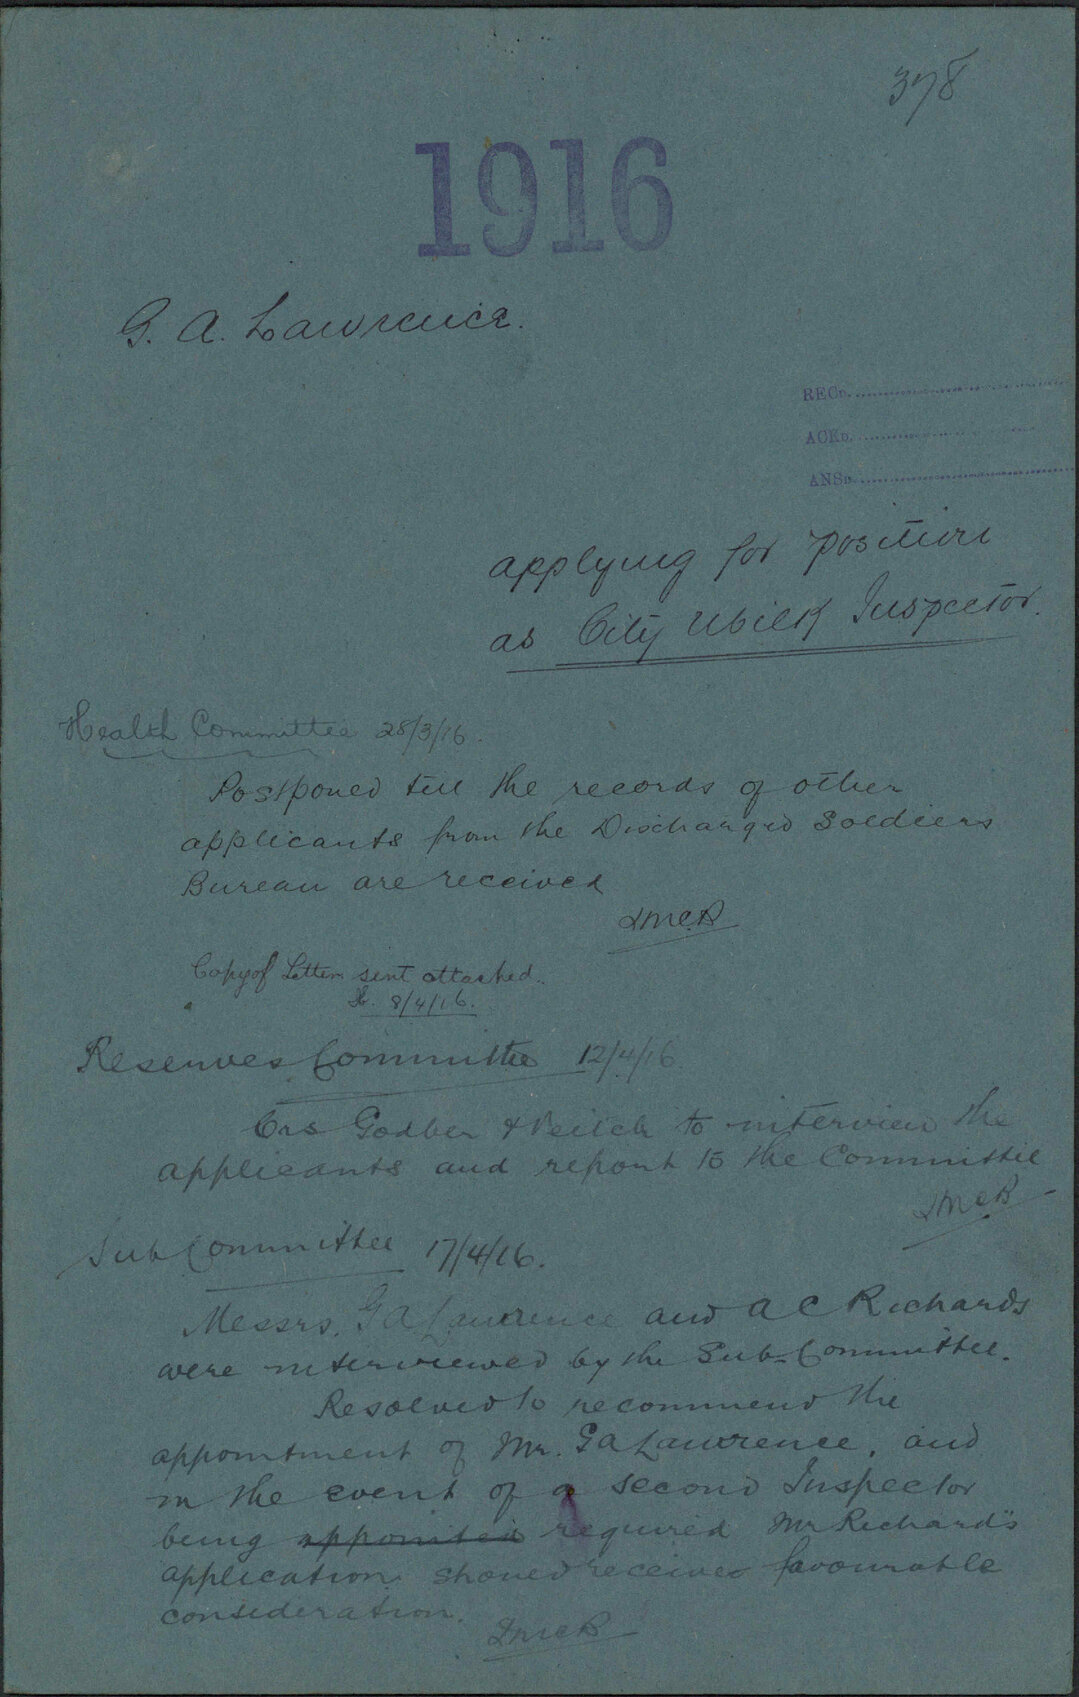 378
1916
G. A. Lawrence.
RECD.
ACKD.
ANSD.
applying for position
as City Milk Inspector.
Health Committee 28/3/16.
Postponed till the records of other
applicants from the Discharged Soldiers
Bureau are received
JMcB
Copy of Letter sent attached.
8/4/16.
Reserves Committee 12/4/16
Crs Godber & Veitch to interview the
applicants and report to the Committee
JMcB
Sub Committee 17/4/16.
Messrs. G A Lawrence and A C Richards
were interviewed by the Sub-Committee.
Resolved to recommend the
appointment of Mr. G A Lawrence, and
in the event of a second Inspector
being appointed required Mr Richard's
application should receive favourable
consideration.
JMcB